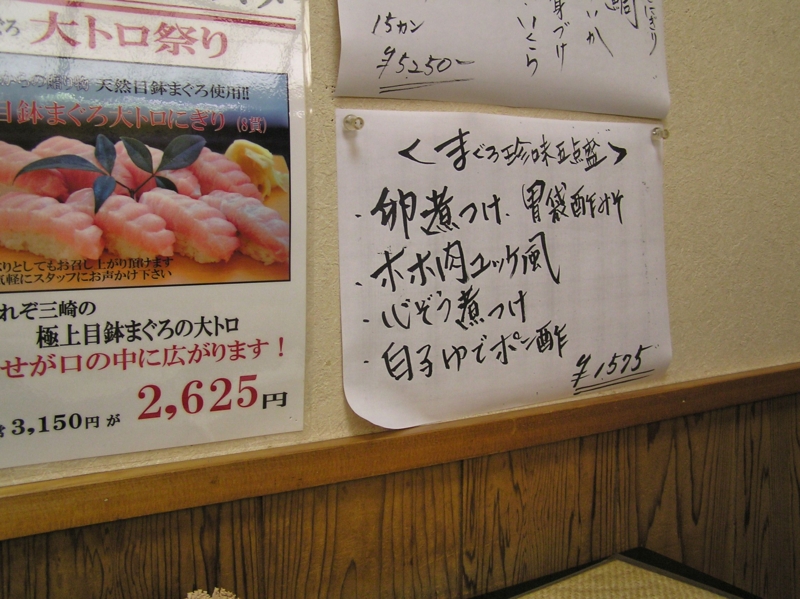 大トロ祭り
天然目鉢まぐろ使用!!
目鉢まぐろ大トロにぎり (8貫)
としてもお召し上がり頂けます
気軽にスタッフにお声かけ下さい
れぞ三崎の
極上目鉢まぐろの大トロ
せが口の中に広がります！
3,150円が 2,625円
にぎり
いか
身づけ
・いくら
15カン
¥5250-
<まぐろ珍味五点盛>
・卵煮つけ、胃袋酢みそ
・ホホ肉ユッケ風
・心ぞう煮つけ
・白子ゆでポン酢
¥1575